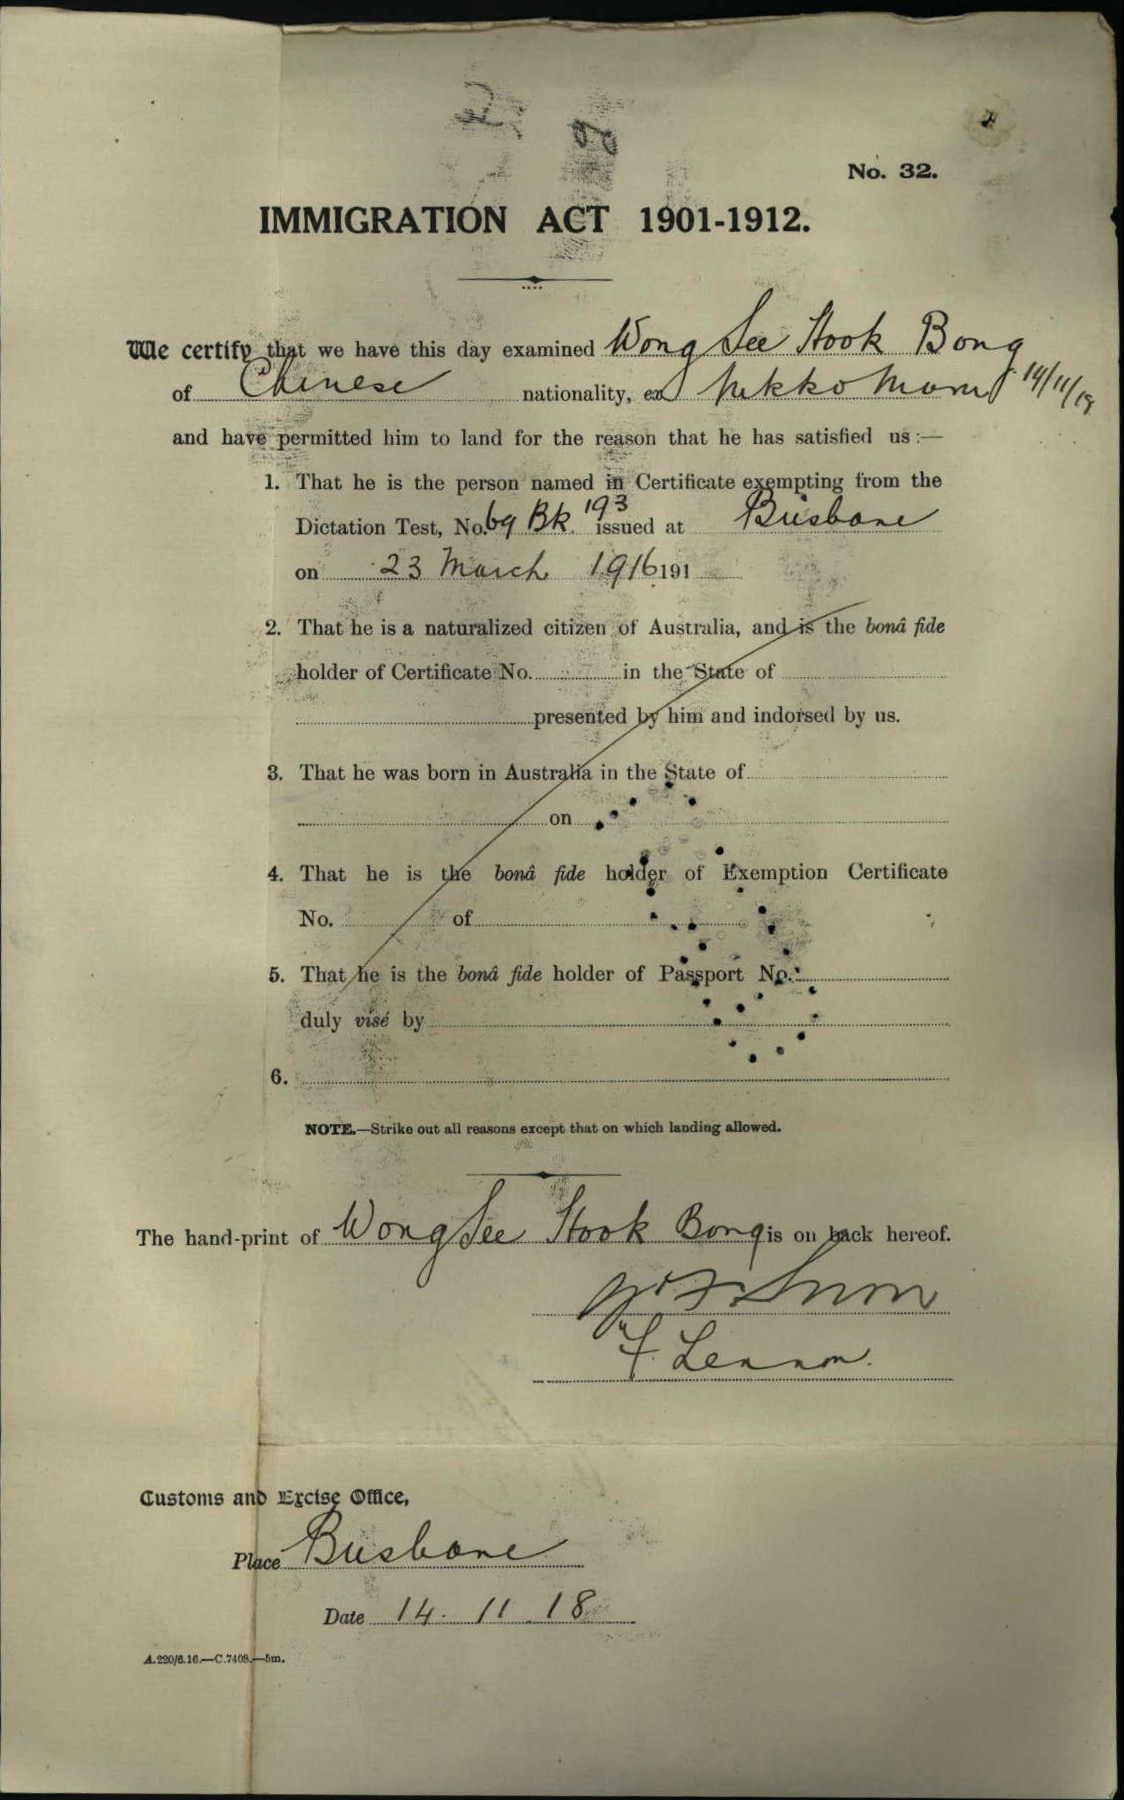 No. 32.
IMMIGRATION ACT 1901-1912.
We certify that we have this day examined Wong See Hook Bong
of Chinese nationality, ex Nikko Maru 14/11/18
and have permitted him to land for the reason that he has satisfied us:—
1. That he is the person named in Certificate exempting from the
Dictation Test, No. 69 Bk. 193 issued at Brisbane
on 23 March 1916 191
2. That he is a naturalized citizen of Australia, and is the bonâ fide
holder of Certificate No. in the State of
presented by him and indorsed by us.
3. That he was born in Australia in the State of
on
4. That he is the bonâ fide holder of Exemption Certificate
No. of
5. That he is the bonâ fide holder of Passport No.
duly visé by
6.
NOTE.—Strike out all reasons except that on which landing allowed.
The hand-print of Wong See Hook Bong is on back hereof.
F. Lennon.
Customs and Excise Office,
Place Brisbane
Date 14. 11. 18
A.220/6.16.—C.7408.—5m.